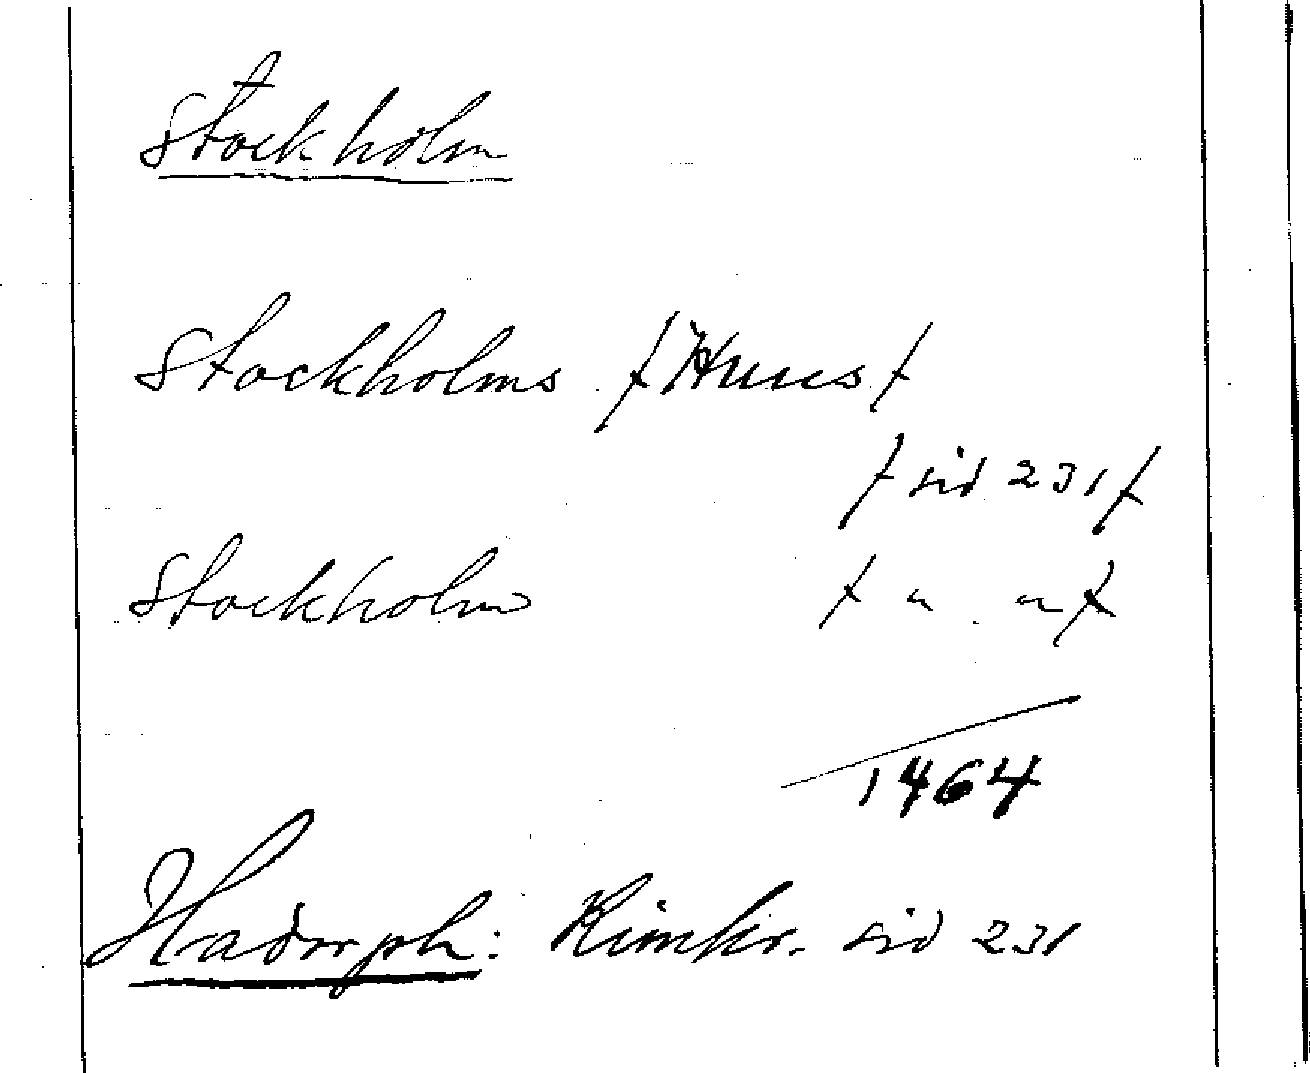 Stockholm
Stockholms /Huus/
/sid 231/
Stockholm /" "/
1464
Hadorph: Rimkr. sid 231